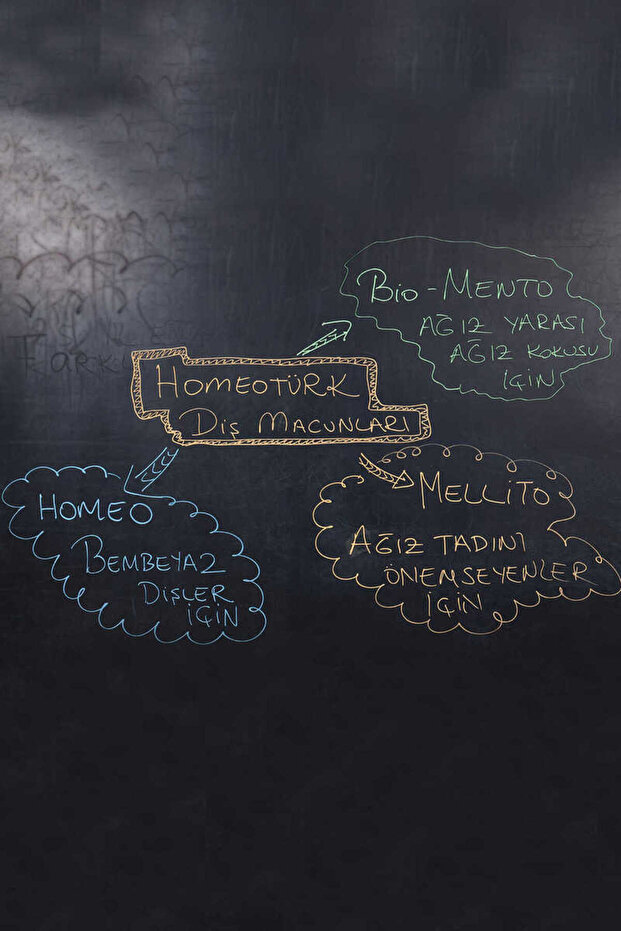 BIO-MENTO
AĞIZ YARASI
AĞIZ KOKUSU
İÇİN
HOMEOTÜRK
DİŞ MACUNLARI
HOMEO
BEMBEYAZ
DİŞLER
İÇİN
MELLİTO
AĞIZ TADINI
ÖNEMSEYENLER
İÇİN